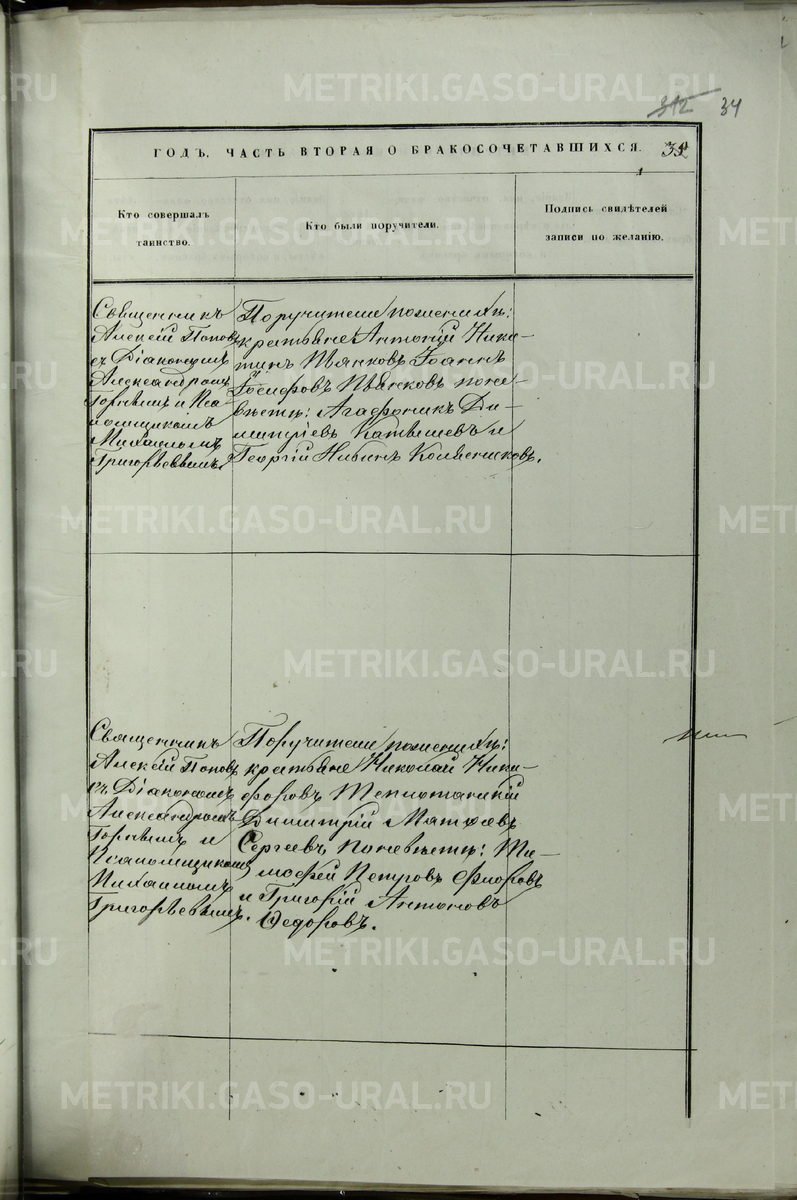 312 34
ГОДЪ, ЧАСТЬ ВТОРАЯ О БРАКОСОЧЕТАВШИХСЯ.
Кто совершалъ
таинство.
Кто были поручители.
Подпись свидѣтелей
записи по желанію.
Священникъ
Алексій Поповъ
съ Діакономъ
Александромъ
и Пса-
ломщикомъ
Михаиломъ
Григорьевымъ
Поручители по женихѣ:
крестьяне Антоній Ники-
тинъ Пьянковъ Іоаннъ
Іосифовъ Пьянковъ по не-
вѣстѣ: Агафоникъ Ди-
митріевъ и
Георгій
Священникъ
Алексій Поповъ
съ Діакономъ
Александромъ
и
Псаломщикомъ
Михаиломъ
Григорьевымъ.
Поручители по женихѣ:
крестьяне Николай Ники-
форовъ
Димитрій
Сергеевъ по невѣстѣ: Ти-
мофей Петровъ
и Григорій Антоновъ
Ѳедоровъ.
METRIKI.GASO-URAL.RU